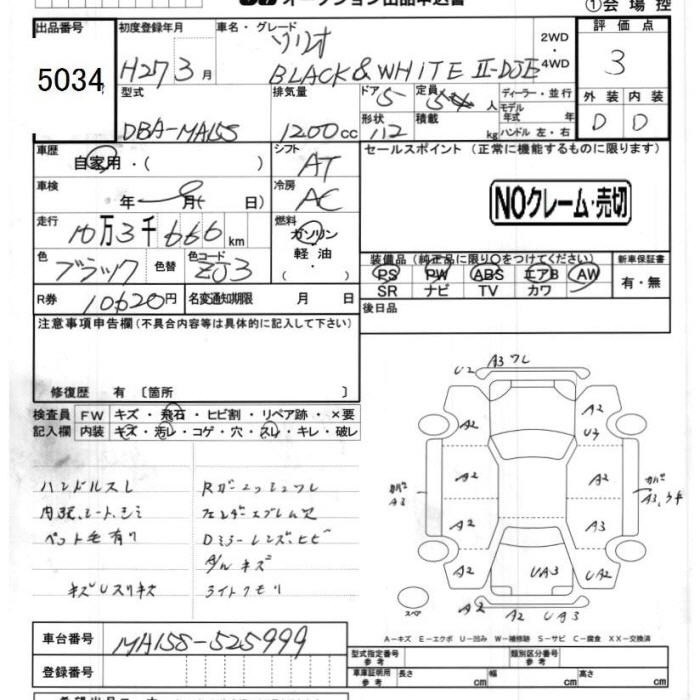 オークション出品申込書
①会場控
出品番号 初度登録年月 車名・グレード 評価点
5034 H27 3月 ソリオ 2WD・4WD 3
BLACK & WHITE II-DJE
型式 排気量 ドア 5 定員 人 ディーラー・並行 外装 内装
DBA-MA15S 1200cc 形状 112 積載 kg モデル年式 年 D D
ハンドル 左・右
車歴 自家用・( ) シフト AT セールスポイント (正常に機能するものに限ります)
車検 年 月( 日) 冷房 AC NOクレーム・売切
走行 10万3千666km 燃料 ガソリン・軽油・( )
色 ブラック 色替 色コード ZJ3
装備品 (純正品に限り○をつけてください) 新車保証書
PS PW ABS エアB AW 有・無
SR ナビ TV カワ
R券 10620円 名変通知期限 月 日 後日品
注意事項申告欄 (不具合内容等は具体的に記入して下さい)
修復歴 有 〔箇所 〕
検査員記入欄 FW キズ・飛石・ヒビ割・リペア跡・×要
内装 キズ・汚レ・コゲ・穴・スレ・キレ・破レ
ハンドルスレ
内張、シート、シミ
ペット毛有り
キズUスリキズ
フェンダーエンブレム欠
Dミラーレンズ、ヒビ
ライトクモリ
U2 A3 フレ
A2 A2
U3
A2 A2
カバ A3 カバ A3、ワキ
A2 A3
A2 UA3 UA2
スペア A2 A2 UA3
A−キズ E−エクボ U−凹み W−補修跡 S−サビ C−腐食 XX−交換済
車台番号 MA15S-525999
型式指定番号 参考 類別区分番号 参考
登録番号 車庫証明用 参考 長さ cm 幅 cm 高さ cm